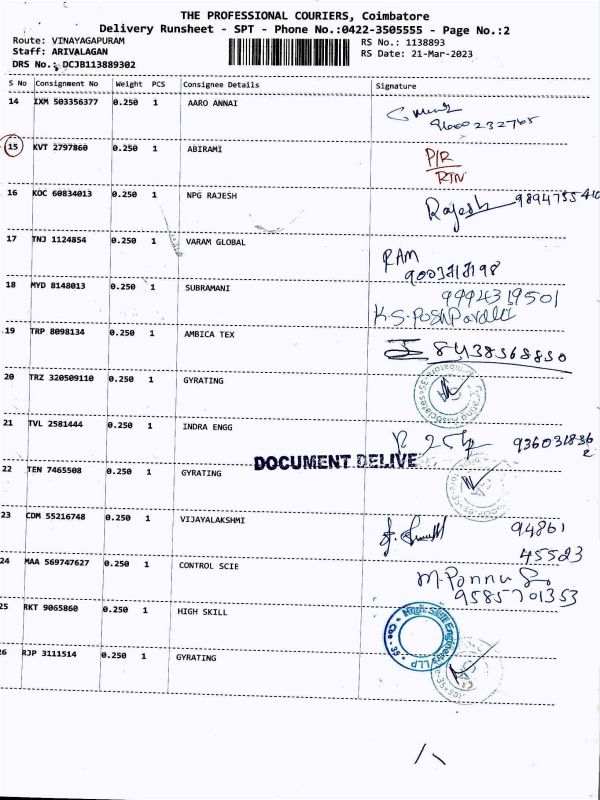 THE PROFESSIONAL COURIERS, Coimbatore
Delivery Runsheet - SPT - Phone No.:0422-3505555 - Page No.:2
Route: VINAYAGAPURAM
Staff: ARIVALAGAN
DRS No.: DCJB113889302
RS No.: 1138893
RS Date: 21-Mar-2023
S No Consignment No Weight PCS Consignee Details Signature
14 IXM 503356377 0.250 1 AARO ANNAI
9600232765
15 KVT 2797860 0.250 1 ABIRAMI P/R
RTN
16 KOC 60834013 0.250 1 NPG RAJESH Rajesh
17 TNJ 1124854 0.250 1 VARAM GLOBAL RAM
18 MYD 8148013 0.250 1 SUBRAMANI 9994319501
19 TRP 8098134 0.250 1 AMBICA TEX 8438568830
20 TRZ 320509110 0.250 1 GYRATING
21 TVL 2581444 0.250 1 INDRA ENGG
DOCUMENT DELIVE
22 TEN 7465508 0.250 1 GYRATING
23 CDM 55216748 0.250 1 VIJAYALAKSHMI 94861
45523
24 MAA 569747627 0.250 1 CONTROL SCIE M. Ponnu
9585701353
25 RKT 9065860 0.250 1 HIGH SKILL High Skill Engineers LLP * Cbe - 35 *
26 RJP 3111514 0.250 1 GYRATING